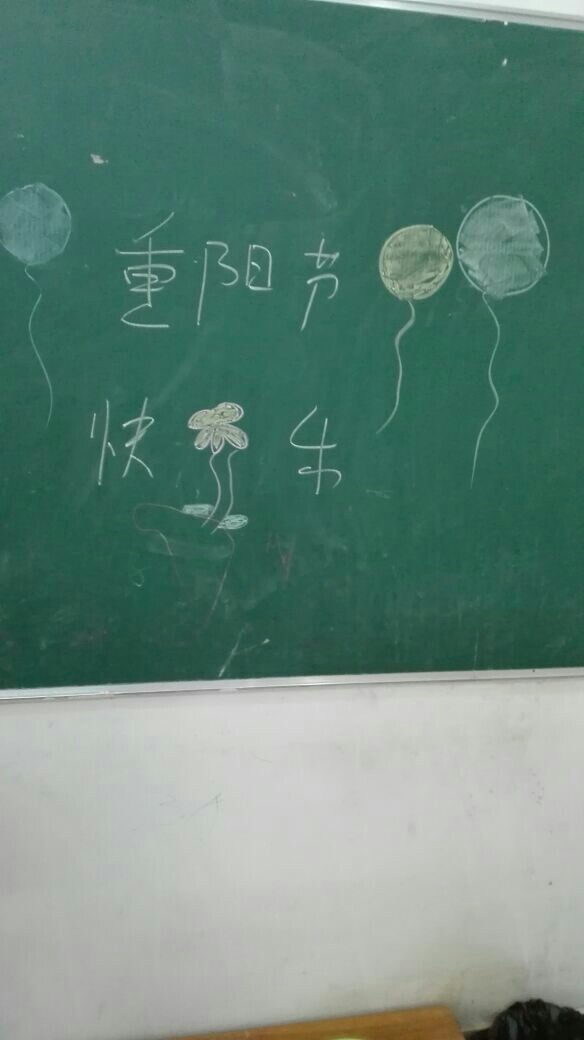 重阳节
快乐